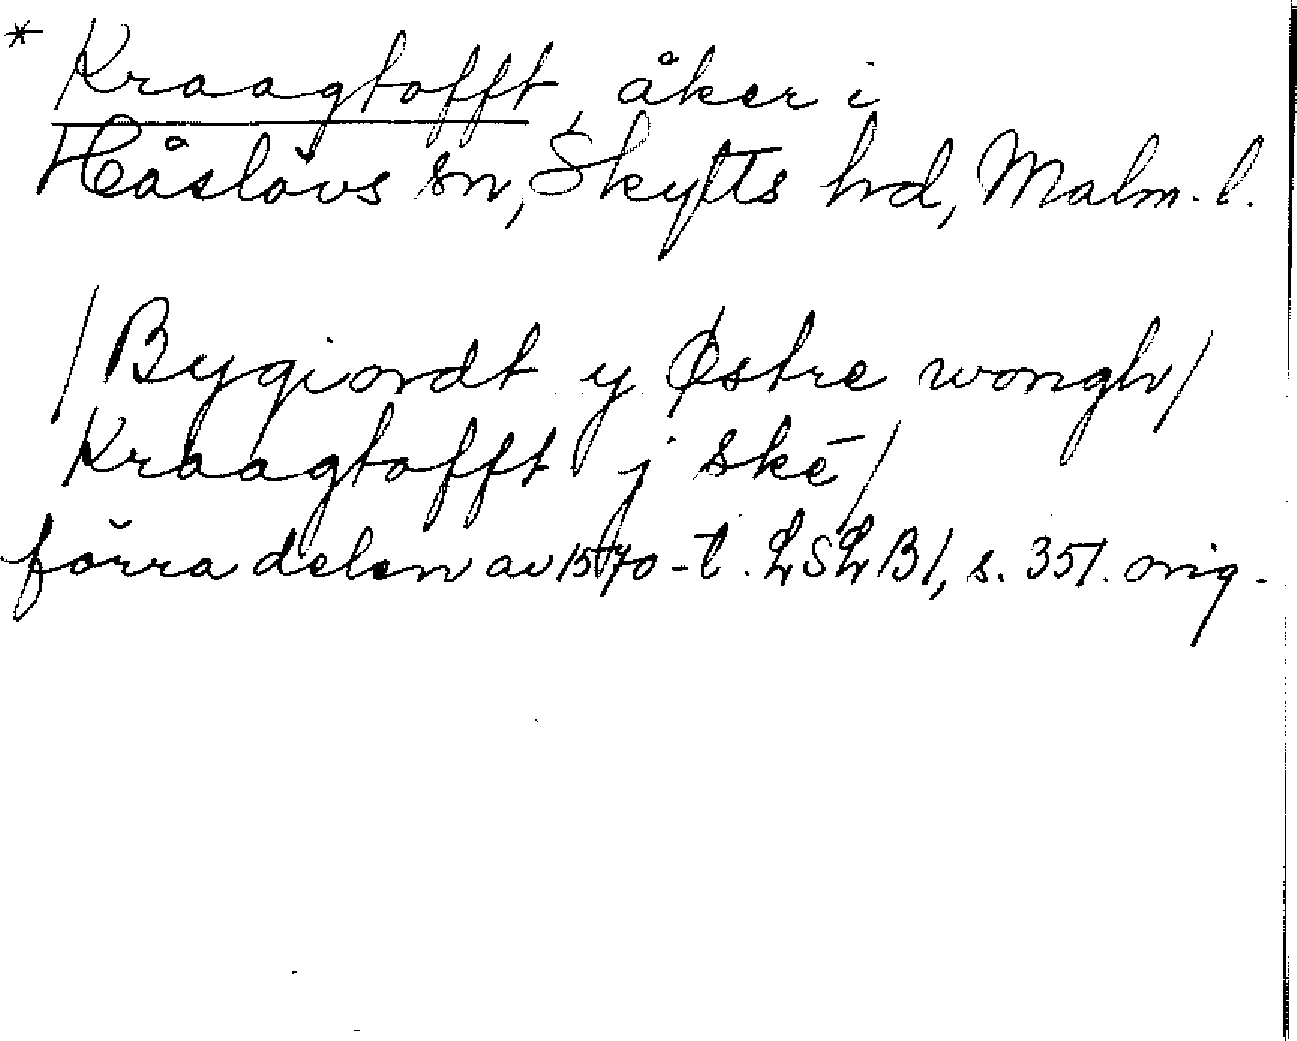 * Kraagtofft, åker i
Håslövs sn, Skytts hd, Malm. l.
/Bygiordt y Østre wongh/
Kraagtofft j skē/
förra delen av 1570-t. LSLB1, s. 351. orig.